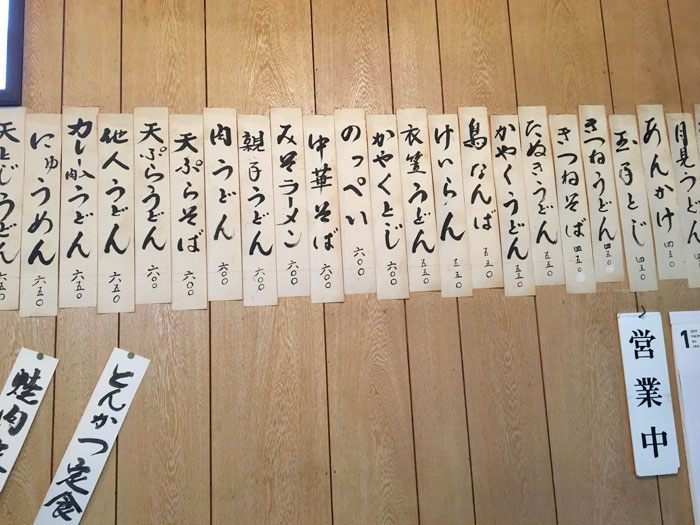 月見うどん
あんかけ 四五〇
玉子とじ 四五〇
きつねうどん 四五〇
きつねそば 四五〇
たぬきうどん 五五〇
かやくうどん 五五〇
鳥なんば 五五〇
けいらん 五五〇
衣笠うどん 五五〇
かやくとじ 六〇〇
のっぺい 六〇〇
中華そば 六〇〇
みそラーメン 六〇〇
親子うどん 六〇〇
肉うどん 六〇〇
天ぷらそば 六〇〇
天ぷらうどん 六〇〇
他人うどん 六五〇
カレー肉入うどん 六五〇
にゅうめん 六五〇
天とじうどん 六五〇
1
営業中
とんかつ定食
焼肉定